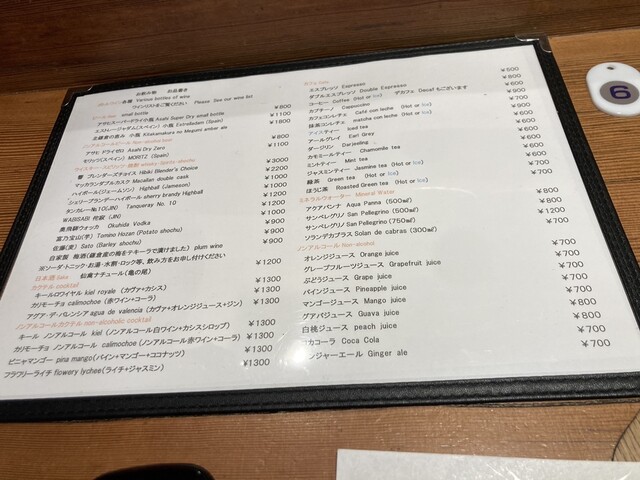 お飲み物 お品書き
各種 Various bottles of wine
ワインリストをご覧ください Please See our wine list
small bottle ¥800
アサヒスーパードライ小瓶 Asahi Super Dry small bottle ¥1100
エストレージャダム(スペイン) 小瓶 Estrella Dam (Spain) ¥1800
小瓶 Kitakamakura no Megumi amber ale
ノンアルコールビール Non-alcoholic beer ¥800
アサヒ ドライゼロ Asahi Dry Zero ¥1100
モリッツ(スペイン) MORITZ (Spain)
響 ブレンダーズチョイス Hibiki Blender's Choice ¥3000
マッカランダブルカスク Macallan double cask ¥2200
ハイボール(ジェームソン) Highball (Jameson) ¥1000
シェリーブランデーハイボール sherry brandy Highball ¥1200
タンカレーNo.10(JIN) Tanqueray No. 10 ¥1000
WABISABI 侘寂 (JIN) ¥1000
奥飛騨ウォッカ Okuhida Vodka ¥900
富乃宝山(芋) Tomino Hozan (Potato shochu) ¥900
佐藤(麦) Sato (Barley shochu) ¥900
自家製 梅酒(鎌倉産の梅をテキーラで漬けました) plum wine ¥900
※ソーダ・トニック・お湯・水割・ロック等、飲み方をお申し付けください
日本酒 Sake 仙禽ナチュール(亀の尾) ¥1200
カクテル cocktail
キールロワイヤル kiel royale (カヴァ+カシス) ¥1300
カリモーチョ calimochoe (赤ワイン+コーラ) ¥1300
アグア・デ・バレンシア agua de valencia (カヴァ+オレンジジュース+ジン) ¥1300
ノンアルコールカクテル non-alcoholic cocktail
キール ノンアルコール kiel (ノンアルコール白ワイン+カシスシロップ) ¥1300
カリモーチョ ノンアルコール calimochoe (ノンアルコール赤ワイン+コーラ) ¥1300
ピニャマンゴー pina mango(パイン+マンゴー+ココナッツ) ¥1300
フラフリーライチ flowery lychee(ライチ+ジャスミン) ¥1300
エスプレッソ Espresso ¥500
ダブルエスプレッソ Double Espresso ¥800
コーヒー Coffee (Hot or Ice) デカフェ Decaf もございます ¥600
カプチーノ Cappuccino ¥700
カフェコンレチェ Café con leche (Hot or Ice) ¥900
抹茶コンレチェ matcha con leche (Hot or Ice) ¥900
アイスティー iced tea ¥600
アールグレイ Earl Grey ¥600
ダージリン Darjeeling ¥600
カモミールティー Chamomile tea ¥600
ミントティー Mint tea ¥600
ジャスミンティー Jasmine tea (Hot or Ice) ¥700
緑茶 Green tea (Hot or Ice) ¥700
ほうじ茶 Roasted Green tea (Hot or Ice) ¥700
ミネラルウォーター Mineral Water
アクアパンナ Aqua Panna (500㎖) ¥800
サンペレグリノ San Pellegrino (500㎖) ¥800
サンペレグリノ San Pellegrino (750㎖) ¥900
ソランデカブラス Solan de cabras (300㎖) ¥700
ノンアルコール Non-alcohol
オレンジジュース Orange juice ¥700
グレープフルーツジュース Grapefruit juice ¥700
ぶどうジュース Grape juice ¥700
パインジュース Pineapple juice ¥700
マンゴージュース Mango juice ¥800
グアバジュース Guava juice ¥800
白桃ジュース peach juice ¥700
コカコーラ Coca Cola ¥700
ンジャーエール Ginger ale ¥700
6